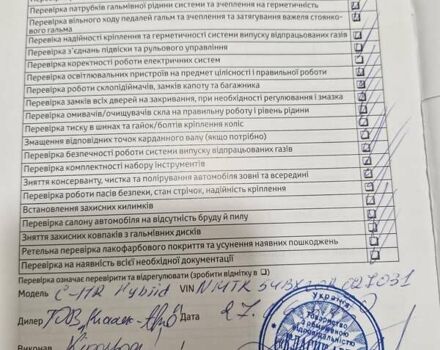 Перевірка патрубків гальмівної рідини системи та зчеплення на герметичність
Перевірка вільного ходу педалей гальм та зчеплення та затягування важеля стоянко-
вого гальма
Перевірка надійності кріплення та герметичності системи випуску відпрацьованих газів
Перевірка з'єднань підвіски та рульового управління
Перевірка коректності роботи електричних систем
Перевірка освітлювальних пристроїв на предмет цілісності і правильної роботи
Перевірка роботи склопідіймачів, замків капоту та багажника
Перевірка замків всіх дверей на закривання, при необхідності регулювання і змазка
Перевірка омивачів/очищувачів скла на правильну роботу і рівень рідини
Перевірка тиску в шинах та гайок/болтів кріплення коліс
Змащення відповідних точок карданного валу (якщо потрібно)
Перевірка безпечності роботи системи випуску відпрацьованих газів
Перевірка комплектності набору інструментів
Зняття консерванту, чистка та полірування автомобіля зовні та всередині
Перевірка роботи пасів безпеки, стан стрічок, надійність кріплення
Встановлення захисних килимків
Перевірка салону автомобіля на відсутність бруду й пилу
Зняття захисних ковпаків з гальмівних дисків
Ретельна перевірка лакофарбового покриття та усунення наявних пошкоджень
Перевірка на наявність всієї необхідної документації
Перевірка означає перевірити та відрегулювати (зробити відмітку в ❑)
Модель C-HR Hybrid VIN
Дилер ТОВ Дата 27.
Виконав
Україна
Товариство
з обмеженою
відповідальністю